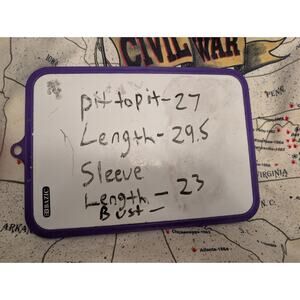 CIVIL WAR
PENN.
pit to pit-27
Length-29.5
Sleeve
Length - 23
Bust -
BAZIC
VIRGINIA
N.C.
S.C.
ARKA
Atlanta-1864